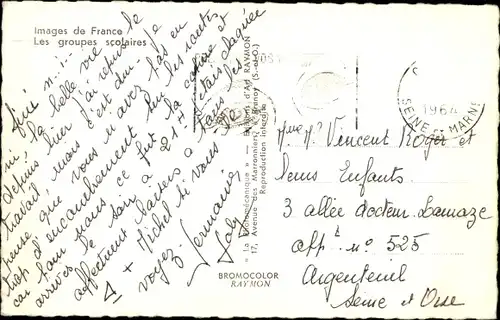 Images de France
Les groupes scolaires
fini
la belle vie le
depuis hier j'ai repris le
travail mais c'est dur. Je
pense que vous n'avez pas eu
trop d'encombrement sur les routes
car pour nous ce fut la nature et
arrivés le soir à 22 H j'étais claquée
affectueux baisers à tous les
4 + Michel si vous le
voyez.
Germaine
"La Photomécanique" — Editions d'Art RAYMON
17, Avenue des Marronniers, Brunoy (S.-&-O.)
Reproduction interdite
BROMOCOLOR
RAYMON
1964
SEINE ET MARNE
Mme Mr Vincent Roger et
leurs Enfants
3 allée docteur Lamaze
app n° 525
Argenteuil
Seine et Oise